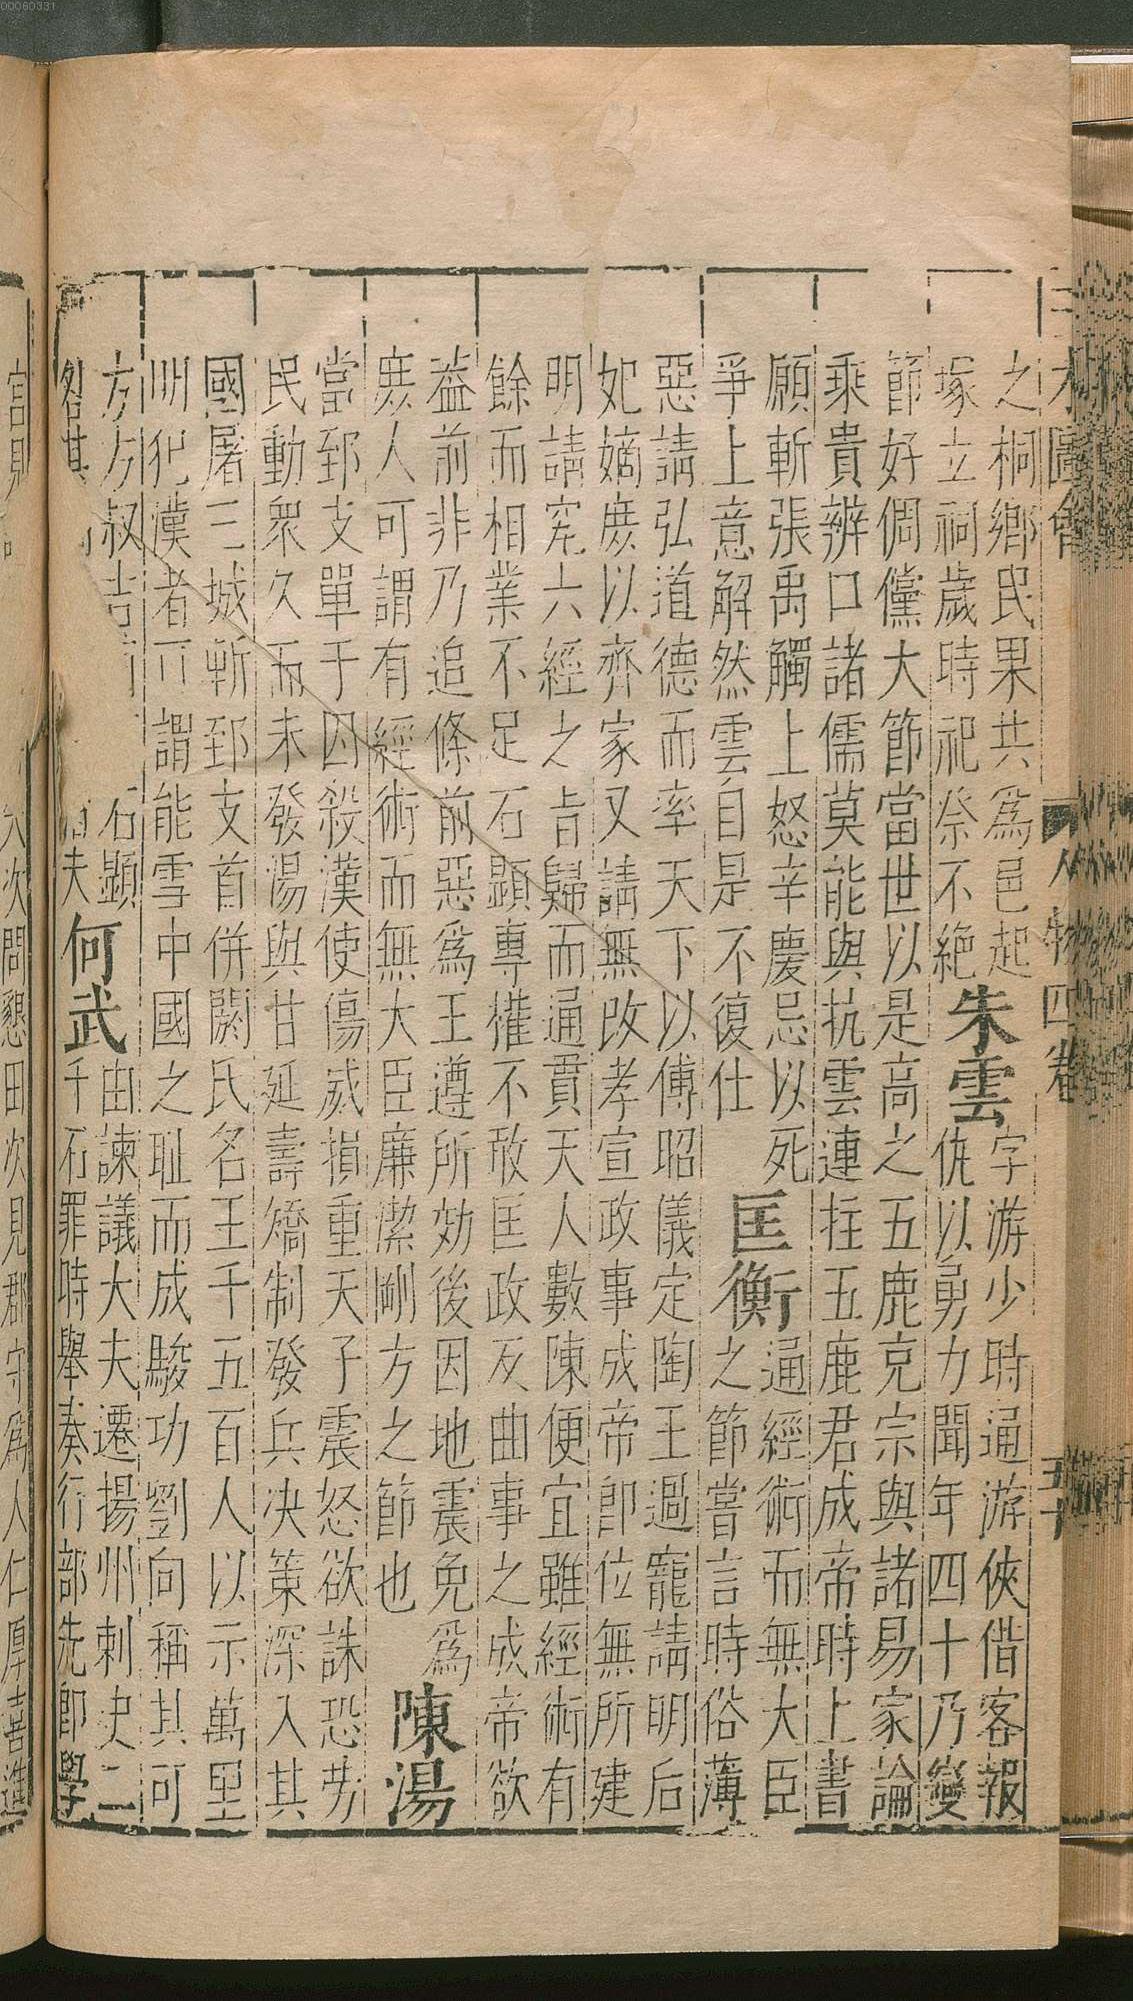 三才圖會 人物四卷 五十
之桐鄉民果共爲邑起
塚立祠歲時祀祭不絕
朱雲
字游少時通游俠借客報
仇以勇力聞年四十乃變
節好倜儻大節當世以是高之五鹿克宗與諸易家論
乘貴辨口諸儒莫能與抗雲連拄五鹿君成帝時上書
願斬張禹觸上怒辛慶忌以死
爭上意解然雲自是不復仕
匡衡
通經術而無大臣
之節嘗言時俗薄
惡請弘道德而率天下以傅昭儀定陶王過寵請明后
妃嫡庶以齊家又請無改孝宣政事成帝即位無所建
明請究六經之旨歸而通貫天人數陳便宜雖經術有
餘而相業不足石顯專權不敢匡政反曲事之成帝欲
葢前非乃追條前惡爲王遵所劾後因地震免爲
庶人可謂有經術而無大臣廉潔剛方之節也
陳湯
當郅支單于囚殺漢使傷威損重天子震怒欲誅恐労
民動衆久而未發湯與甘延壽矯制發兵決策深入其
國屠三城斬郅支首併閼氏名王千五百人以示萬里
明犯漢者可謂能雪中國之耻而成駿功劉向稱其可
方方叔吉石顯
夫
何武
由諫議大夫遷揚州刺史二
千石罪時舉奏行部先即學
次問懇田次見郡守爲人仁厚喜進